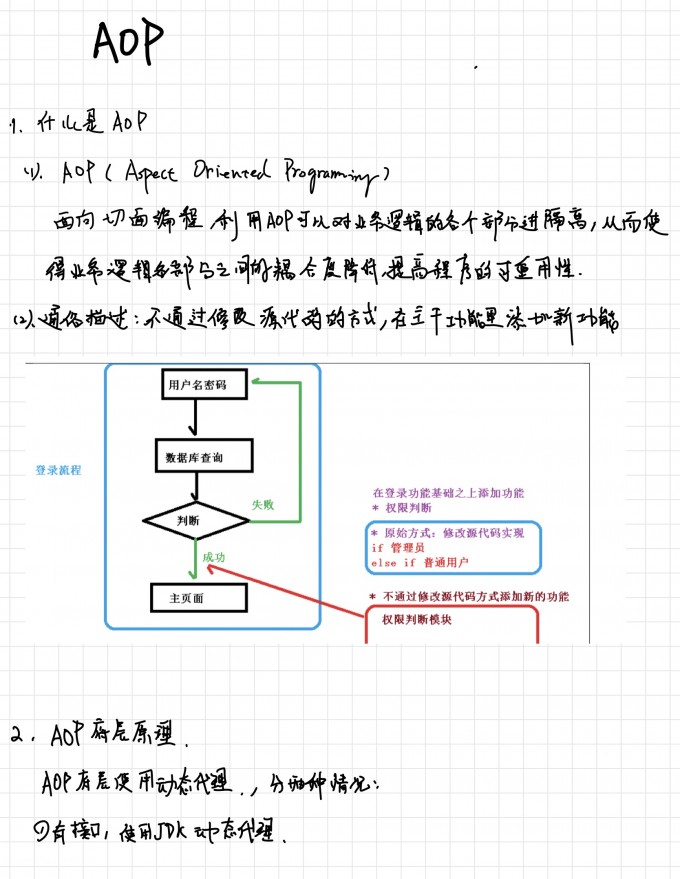 AOP
1. 什么是 AOP
(1). AOP ( Aspect Oriented Programing )
面向切面编程, 利用AOP可以对业务逻辑的各个部分进隔离, 从而使
得业务逻辑各部分之间的耦合度降低, 提高程序的可重用性.
(2). 通俗描述: 不通过修改源代码的方式, 在主干功能里添加新功能
用户名密码
数据库查询
登录流程
失败
判断
成功
主页面
在登录功能基础之上添加功能
* 权限判断
* 原始方式: 修改源代码实现
if 管理员
else if 普通用户
* 不通过修改源代码方式添加新的功能
权限判断模块
2. AOP 底层原理.
AOP 底层使用动态代理., 分两种情况:
①有接口, 使用JDK 动态代理.